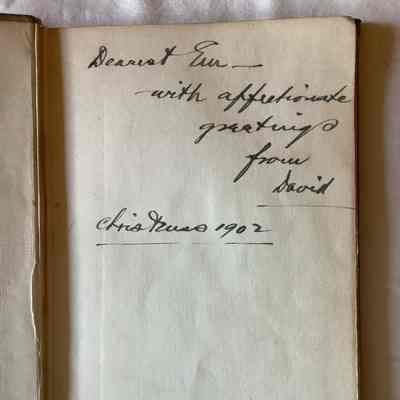 Dearest Em —
with affectionate
greetings
from
David
Christmas 1902